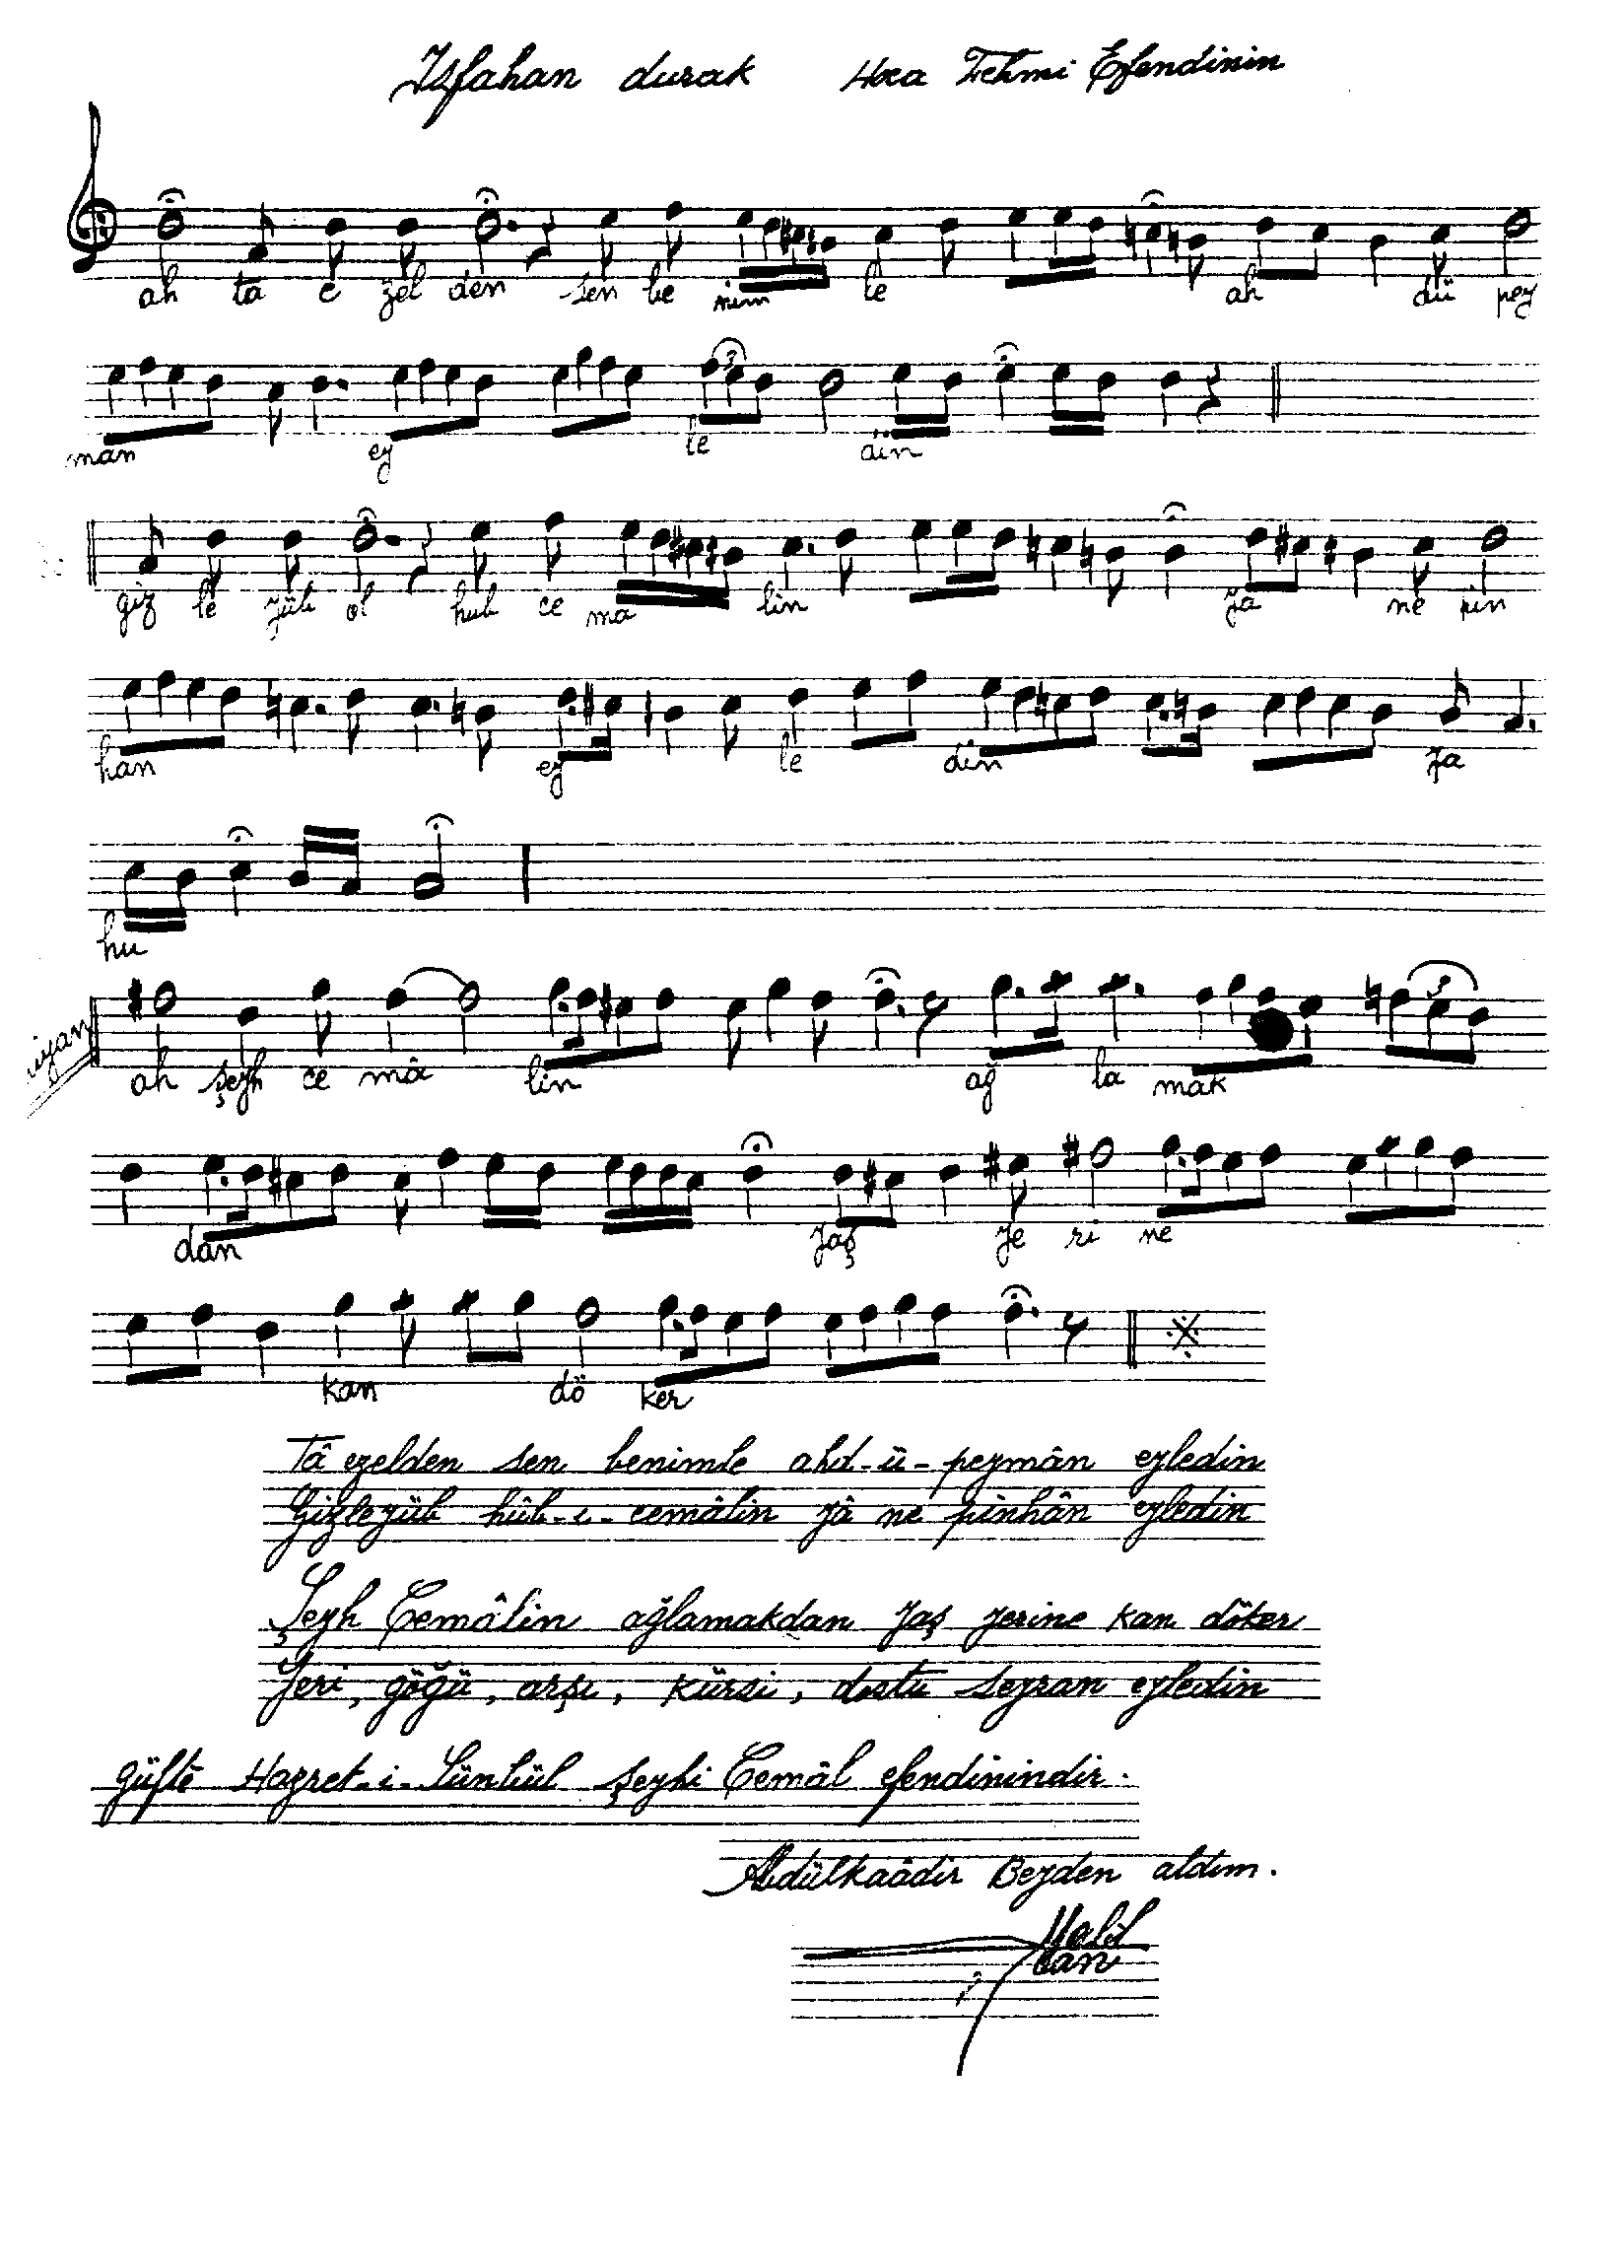 Isfahan durak Hoca Fehmi Efendinin
ah ta e zel den sen be nim le ah dü pey
man ey le din
giz le yüb ol hub ce ma lin ya ne pin
han ey le din ya
hu
miyan
ah şeyh ce mâ lin ağ la mak
dan yaş ye ri ne
kan dö ker
Tâ ezelden sen benimle ahd-ü-peymân eyledin
Gizleyüb hüb-ı-cemâlin yâ ne pinhân eyledin
Şeyh Cemâlin ağlamakdan yaş yerine kan döker
Yeri, göğü, arşı, kürsi, dostu seyran eyledin
güfte Hazret-i-Sünbül şeyhi Cemâl efendinindir.
Abdülkaâdir Beyden aldım.
Halil
Can